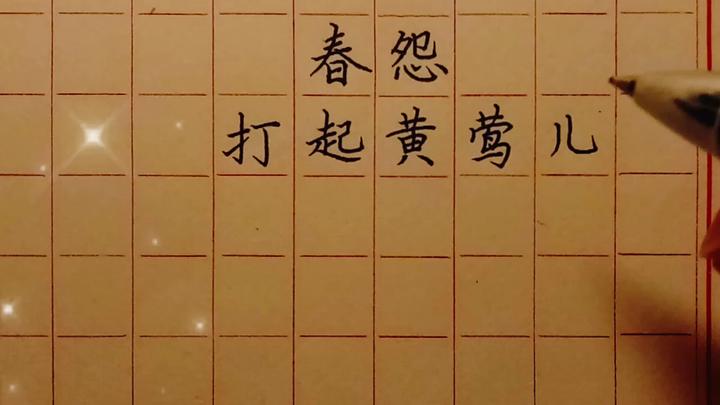 春怨
打起黄莺儿